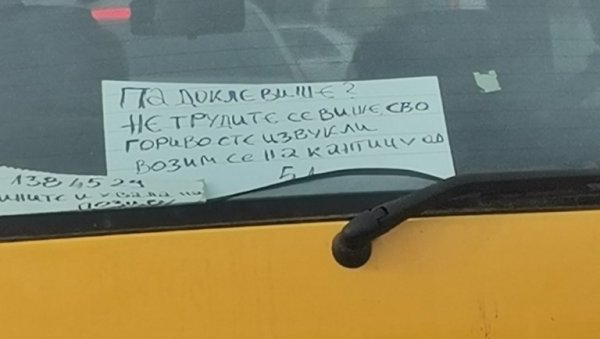 ПА ДОКЛЕ ВИШЕ?
НЕ ТРУДИТЕ СЕ ВИШЕ СВО
ГОРИВО СТЕ ИЗВУКЛИ
ВОЗИМ СЕ НА КАНТИЦУ ОД
5 Л
138 4524
ПОЗИВУ